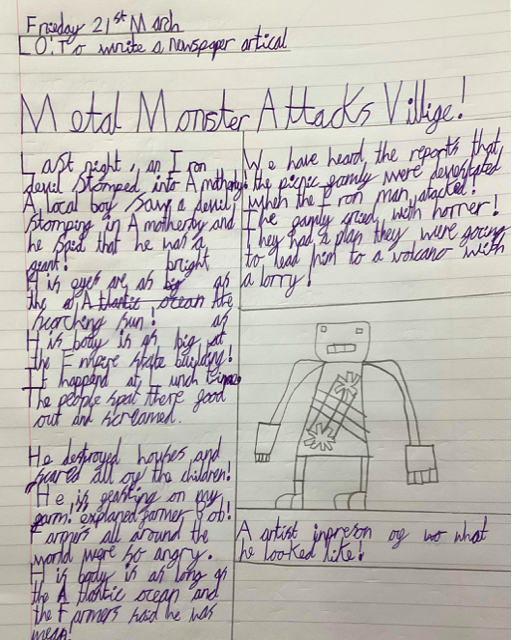 Frieday 21st March
L.O: To write a newspaper artical
Metal Monster Attacks Villige!
Last night, an Iron
devil stomped into Amotherby!
A local boy saw a devil
stomping in Amotherby and
he said that he was a
giant! bright
His eyes are as big as
the Atlantic ocean the
scorching sun! as
His body is as big at
the Empire state building!
It happend at Lunch time
The people spat there good
out and screamed.
He destroyed houses and
scared all of the children!
"He is geasting on my
garm!" explaned farmer
Farmers all around the
world were so angry.
His body is as long as
the Atlantic ocean and
the Farmers said he was
mean!
We have heard, the reports that,
the picnic gamly were devestated
when the Iron man atacked!
The gamly cried with horrer!
They had a plan they were going
to lead him to a volcano with
a lorry!
A artist inpreson of wo what
he looked like!